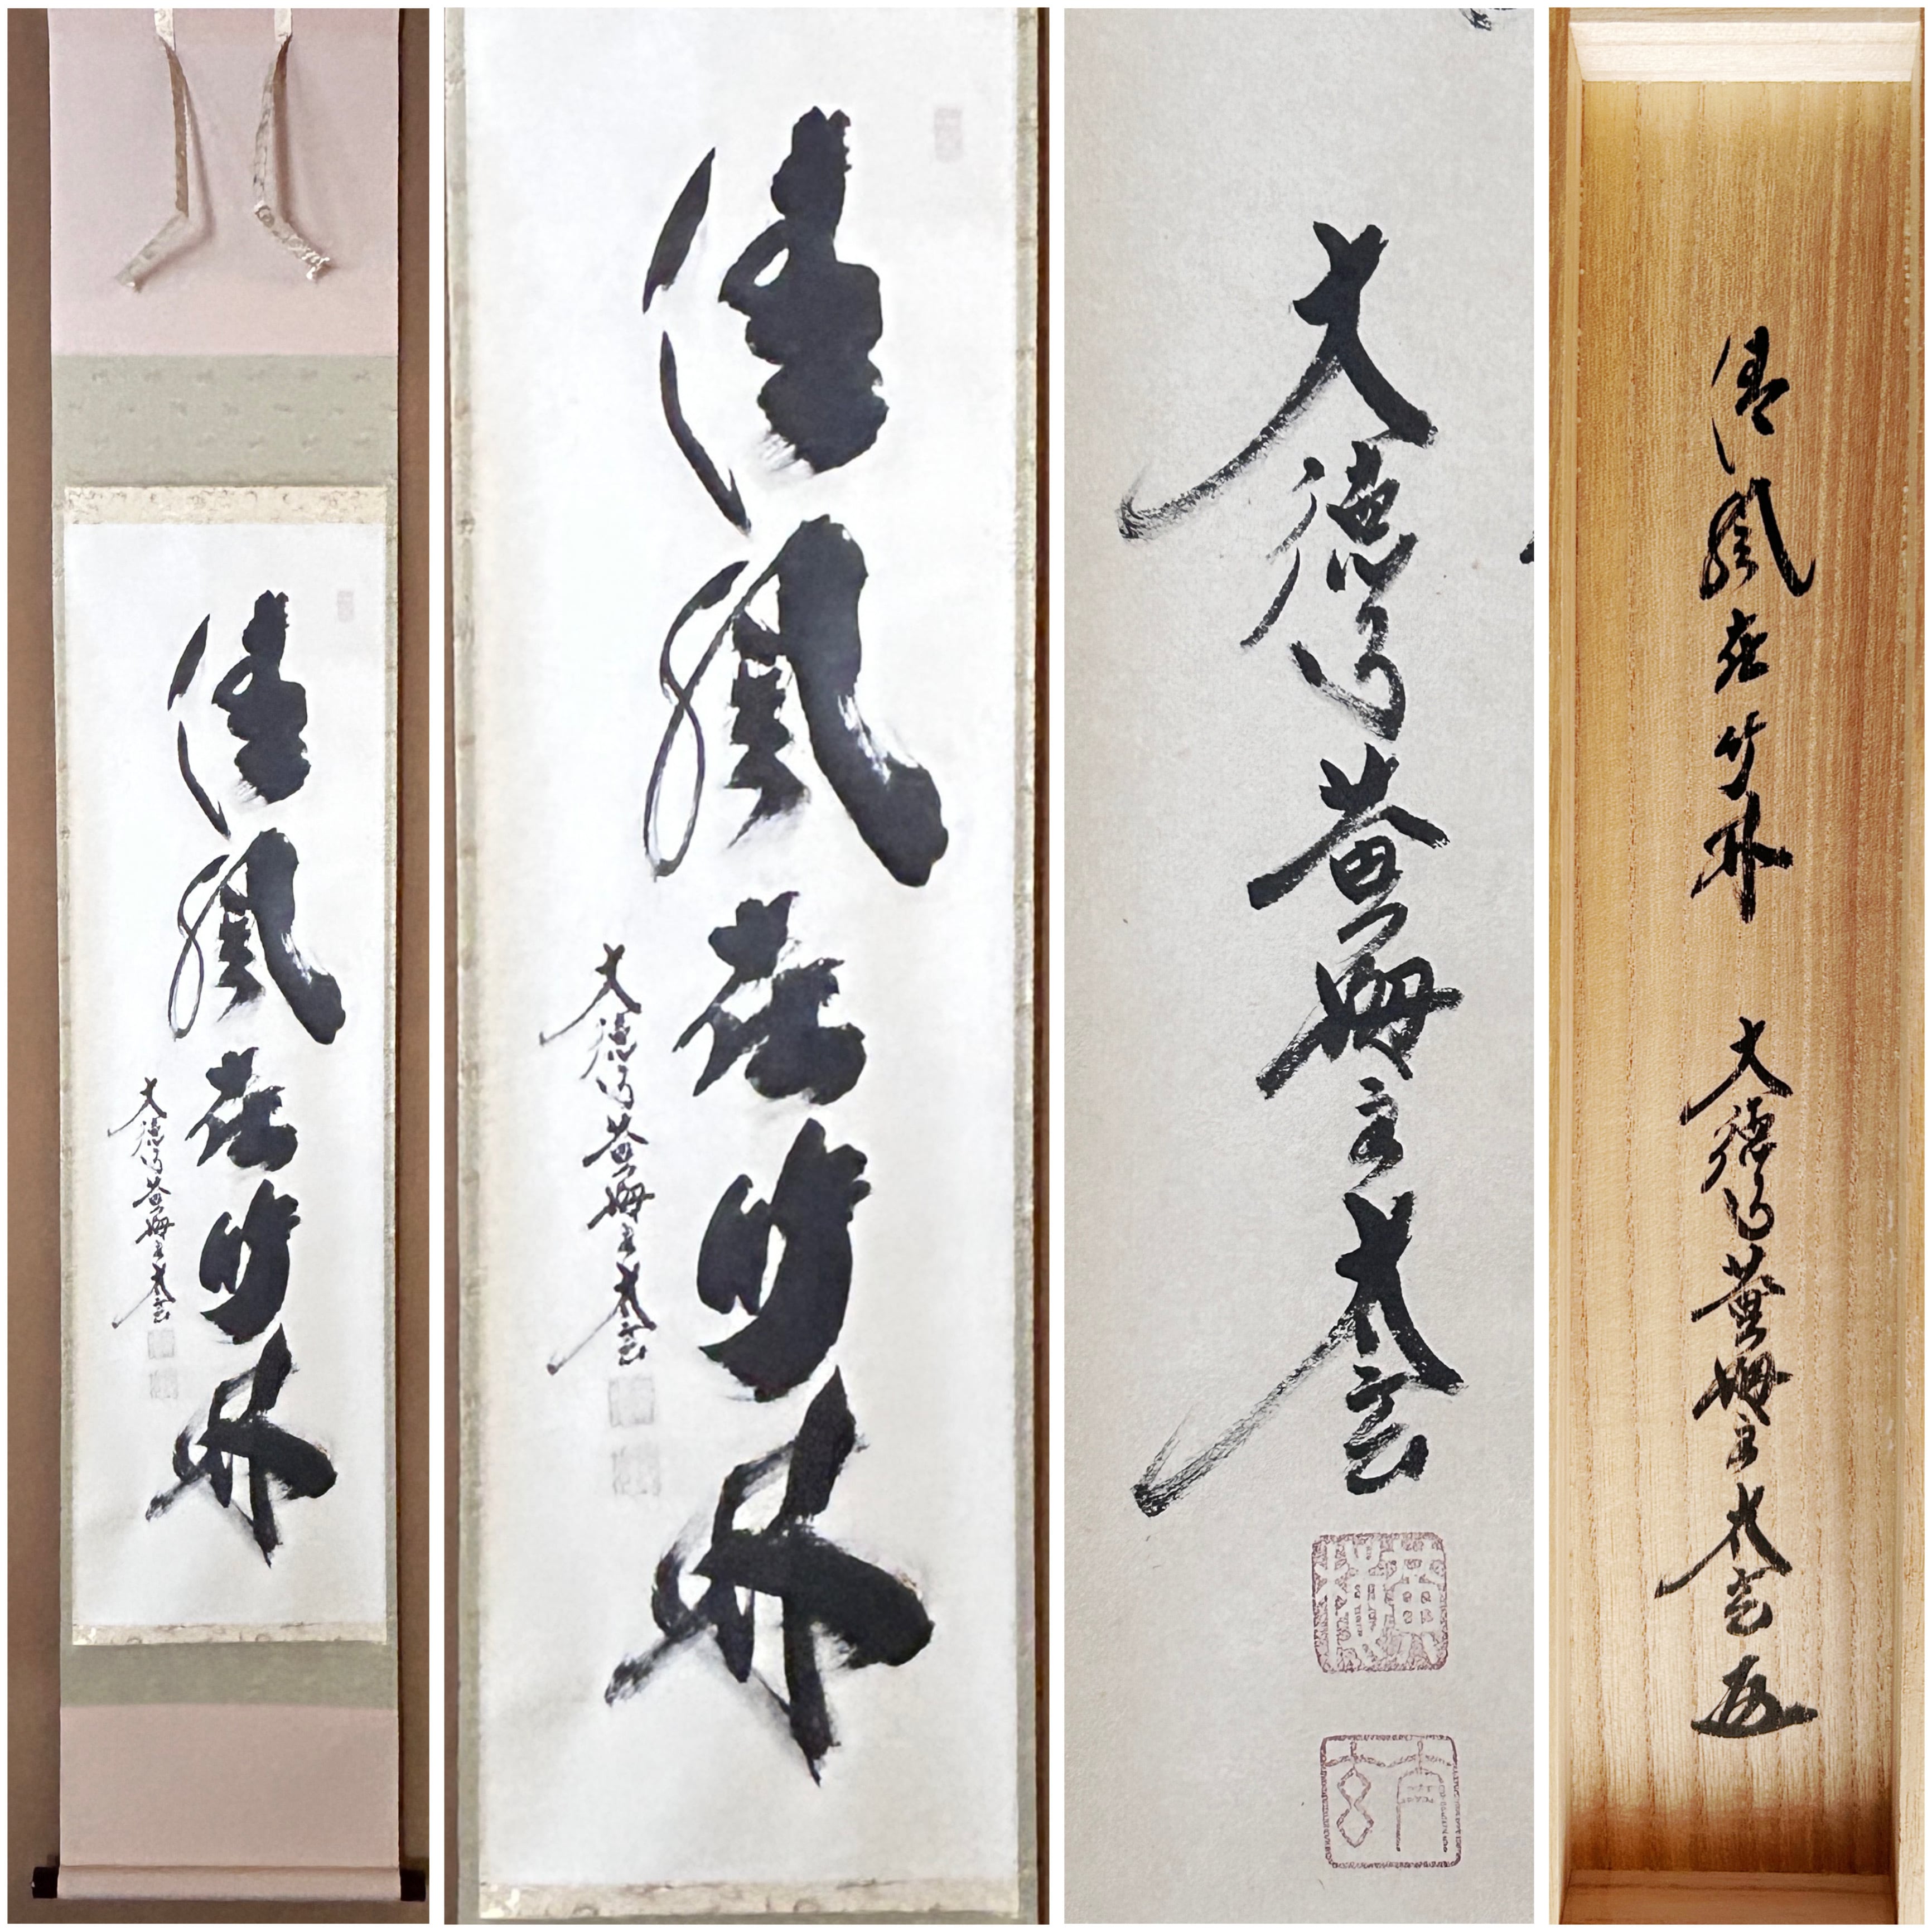 清風在竹林
大徳寺黄梅主太玄
清風在竹林
大徳寺黄梅主太玄
大徳寺黄梅主太玄
清風在竹林 大徳寺黄梅主太玄